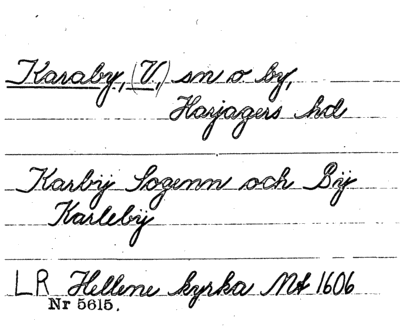 Karaby, (V.,) sn o. by,
Harjagers hd
Karbÿ Sogenn och Bÿ
Karlebÿ
LR Hellene kyrka Mt 1606
Nr 5615.